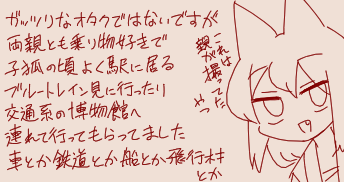 ガッツリなオタクではないですが
両親とも乗り物好きで
子狐の頃よく駅に居る
ブルートレイン見に行ったり
交通系の博物館へ
連れて行ってもらってました
車とか鉄道とか船とか飛行機
とか
これは
親が撮ってた
やつ